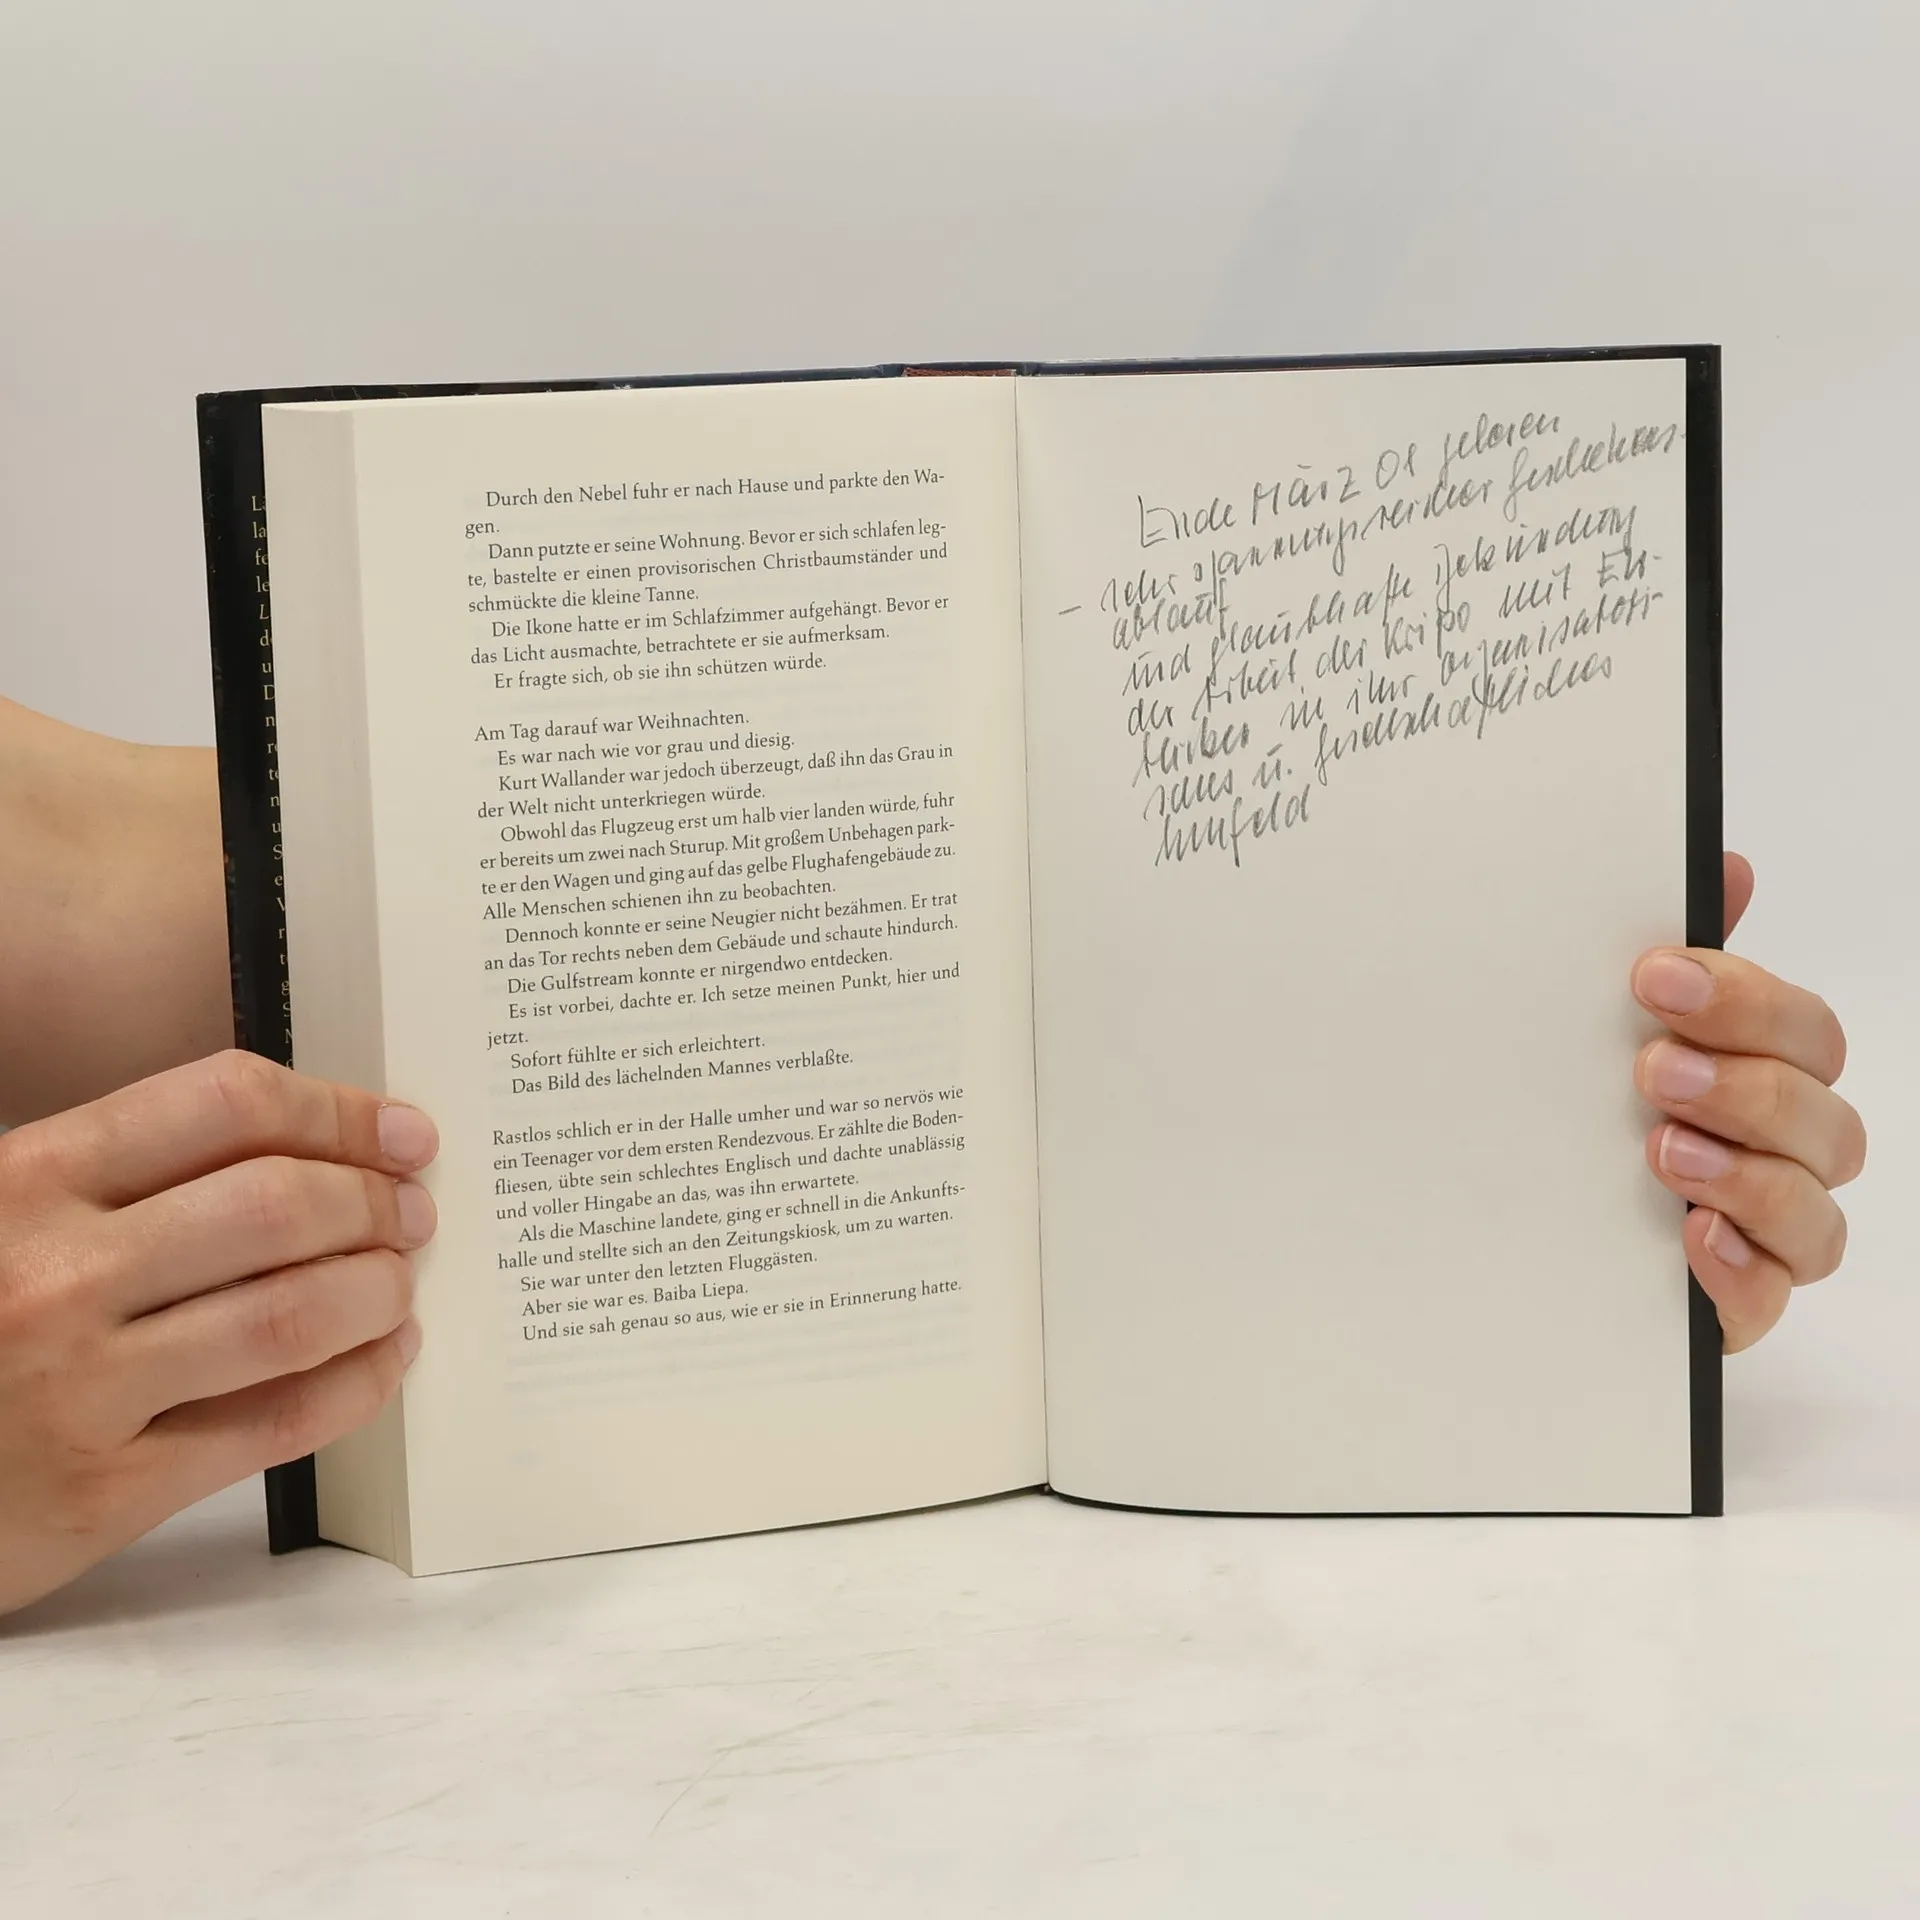 Durch den Nebel fuhr er nach Hause und parkte den Wa-
gen.
Dann putzte er seine Wohnung. Bevor er sich schlafen leg-
te, bastelte er einen provisorischen Christbaumständer und
schmückte die kleine Tanne.
Die Ikone hatte er im Schlafzimmer aufgehängt. Bevor er
das Licht ausmachte, betrachtete er sie aufmerksam.
Er fragte sich, ob sie ihn schützen würde.
Am Tag darauf war Weihnachten.
Es war nach wie vor grau und diesig.
Kurt Wallander war jedoch überzeugt, daß ihn das Grau in
der Welt nicht unterkriegen würde.
Obwohl das Flugzeug erst um halb vier landen würde, fuhr
er bereits um zwei nach Sturup. Mit großem Unbehagen park-
te er den Wagen und ging auf das gelbe Flughafengebäude zu.
Alle Menschen schienen ihn zu beobachten.
Dennoch konnte er seine Neugier nicht bezähmen. Er trat
an das Tor rechts neben dem Gebäude und schaute hindurch.
Die Gulfstream konnte er nirgendwo entdecken.
Es ist vorbei, dachte er. Ich setze meinen Punkt, hier und
jetzt.
Sofort fühlte er sich erleichtert.
Das Bild des lächelnden Mannes verblaßte.
Rastlos schlich er in der Halle umher und war so nervös wie
ein Teenager vor dem ersten Rendezvous. Er zählte die Boden-
fliesen, übte sein schlechtes Englisch und dachte unablässig
und voller Hingabe an das, was ihn erwartete.
Als die Maschine landete, ging er schnell in die Ankunfts-
halle und stellte sich an den Zeitungskiosk, um zu warten.
Sie war unter den letzten Fluggästen.
Aber sie war es. Baiba Liepa.
Und sie sah genau so aus, wie er sie in Erinnerung hatte.
Ende März 01 gelesen
– sehr spannungsreicher Geschehens-
ablauf
und glaubhafte
der Arbeit der Kripo mit
in ihr organisatori-
sches u. gesellschaftliches
Umfeld